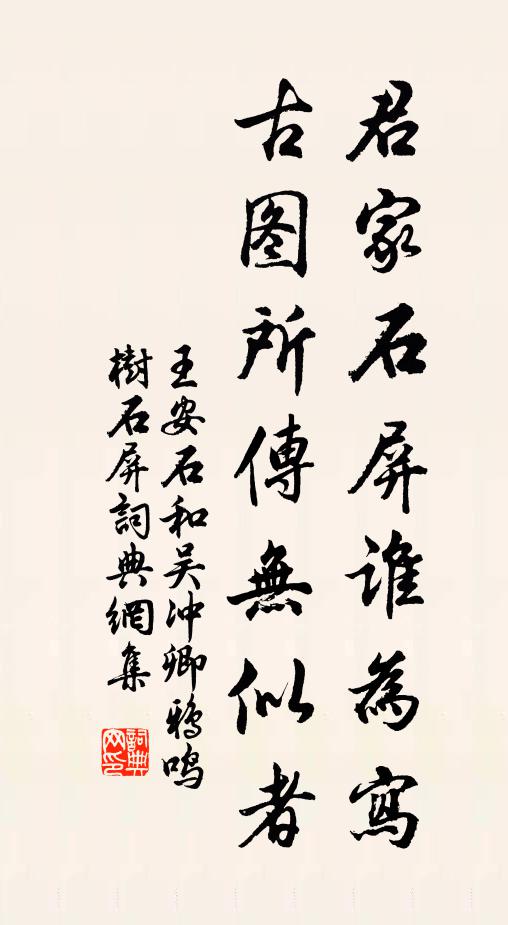 君家石屏誰為寫
古图所傳無似者
王安石和吴冲卿鴉鸣
樹石屏詞典網集
詞典网印